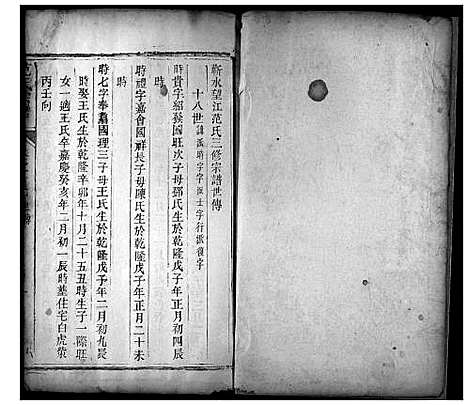 蘄水望江范氏三修宗譜世傳
十八世 諱派時字 字派士字 行派發字
時貴字紹發國旺次子母鄧氏生於乾隆戊子年正月初四辰
時
時禮字嘉會國祥長子母陳氏生於乾隆戊子年正月二十未
時
時七字奉嘉國理三子母王氏生於乾隆戊子年二月初九辰
時娶王氏生於乾隆辛卯年十月二十五丑時生子一際旺
女一適王氏卒嘉慶癸亥年二月初一辰時墓住宅白虎塋
丙壬向